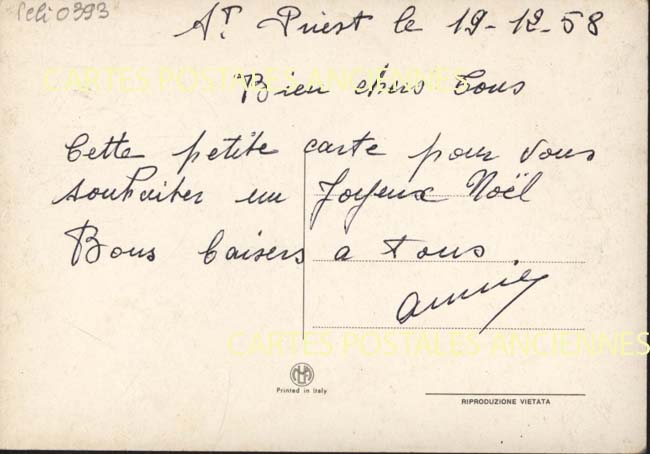 Peli 0393
St Priest le 19-12-58
Bien chers tous
Cette petite carte pour vous
souhaiter un Joyeux Noël
Bons baisers a tous
annie
CARTES POSTALES ANCIENNES
CARTES POSTALES ANCIENNES
Printed in Italy
RIPRODUZIONE VIETATA